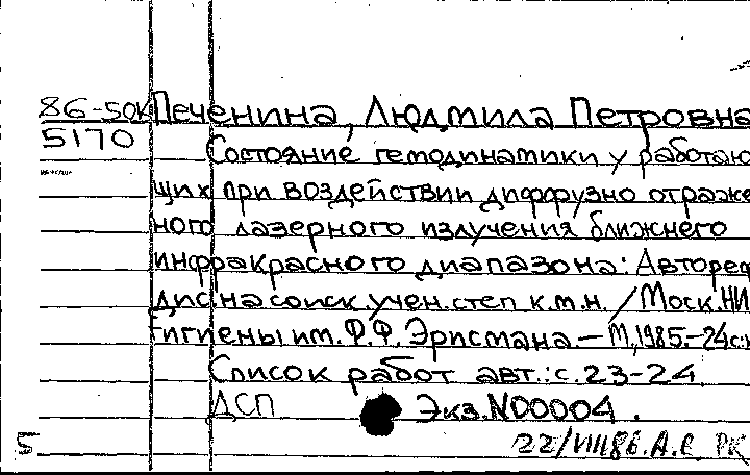 86-50К Печенина, Людмила Петровна
5170
Состояние гемодинамики у работаю
щих при воздействии диффузно отраже
ного лазерного излучения ближнего
инфракрасного диапазона: Автореф
дис. на соиск. учен. степ к.м.н. / Моск. НИ
гигиены им. Ф.Ф. Эрисмана. — М, 1985. - 24с.
Список работ авт.: с. 23-24
ДСП Экз. N00004.
5 22/VIII86. А.Е. РК